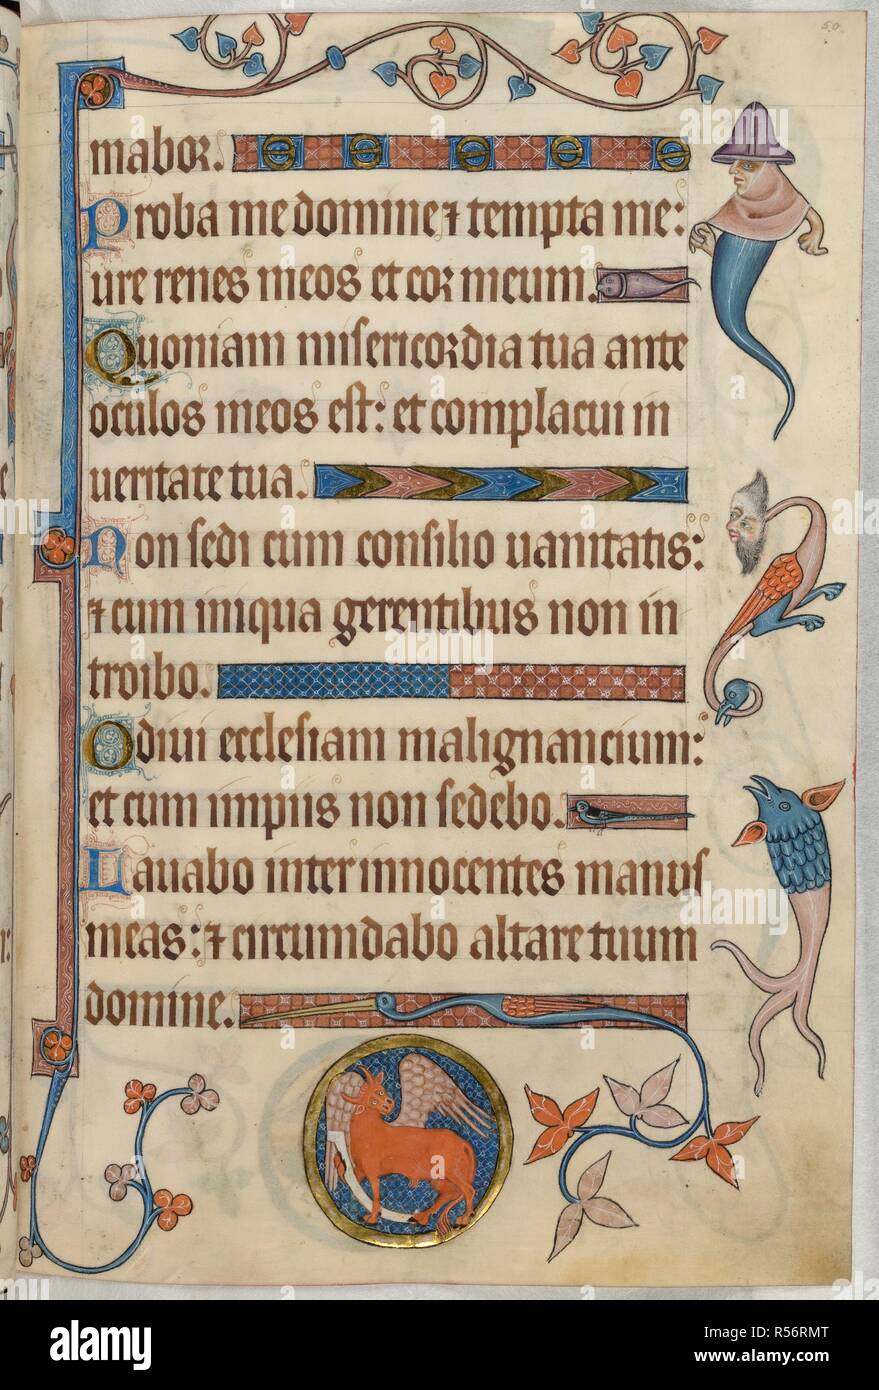 50
mabor.
Proba me domine ⁊ tempta me:
ure renes meos et cor meum.
Quoniam misericordia tua ante
oculos meos est: et complacui in
veritate tua.
Non sedi cum consilio vanitatis:
⁊ cum iniqua gerentibus non in
troibo.
Odivi ecclesiam malignancium:
et cum impiis non sedebo.
Lavabo inter innocentes manus
meas: ⁊ circumdabo altare tuum
domine.
a
alamy
Image ID: R56RMT
www.alamy.com